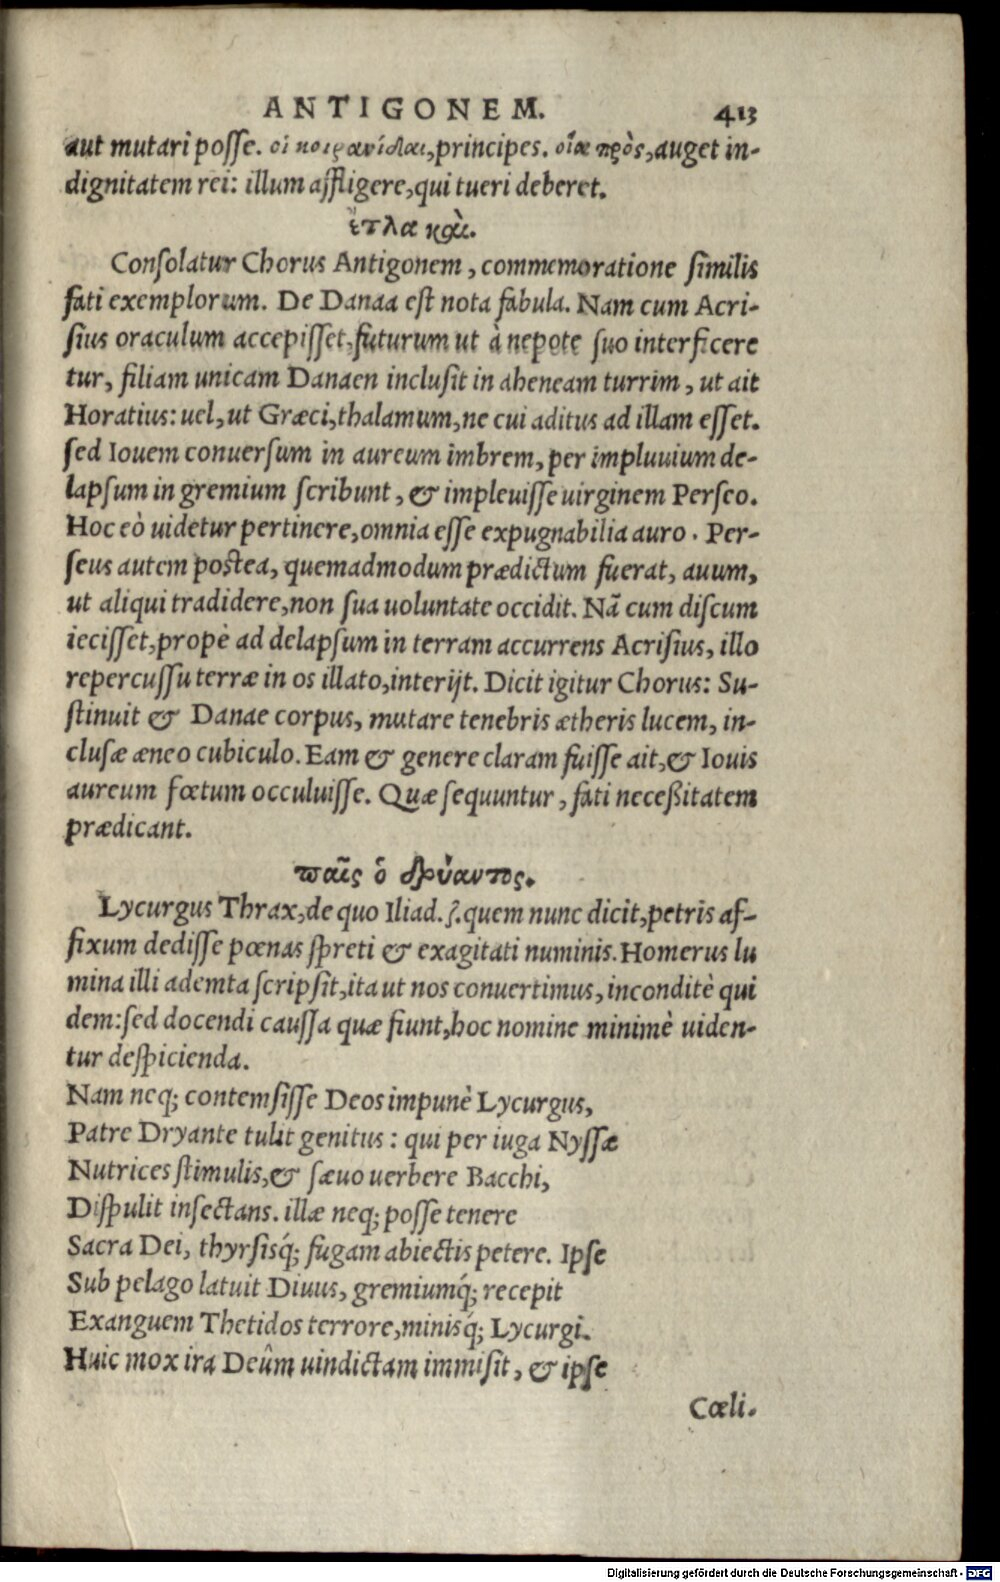 ANTIGONEM. 413
aut mutari posse. οἱ κοιρανίδαι, principes. οἷα πρὸς, auget in-
dignitatem rei: illum affligere, qui tueri deberet.
ἔτλα καὶ.
Consolatur Chorus Antigonem, commemoratione similis
fati exemplorum. De Danaa est nota fabula. Nam cum Acri-
sius oraculum accepisset, futurum ut à nepote suo interficere
tur, filiam unicam Danaen inclusit in aheneam turrim, ut ait
Horatius: uel, ut Græci, thalamum, ne cui aditus ad illam esset.
sed Iouem conuersum in aureum imbrem, per impluuium de-
lapsum in gremium scribunt, & impleuisse uirginem Perseo.
Hoc eò uidetur pertinere, omnia esse expugnabilia auro. Per-
seus autem postea, quemadmodum prædictum fuerat, auum,
ut aliqui tradidere, non sua uoluntate occidit. Nã cum discum
iecisset, propè ad delapsum in terram accurrens Acrisius, illo
repercussu terræ in os illato, interijt. Dicit igitur Chorus: Su-
stinuit & Danae corpus, mutare tenebris ætheris lucem, in-
clusæ æneo cubiculo. Eam & genere claram fuisse ait, & Iouis
aureum fœtum occuluisse. Quæ sequuntur, fati neceßitatem
prædicant.
παῖς ὁ δρύαντος.
Lycurgus Thrax, de quo Iliad. ζ. quem nunc dicit, petris af-
fixum dedisse pœnas spreti & exagitati numinis. Homerus lu
mina illi ademta scripsit, ita ut nos conuertimus, inconditè qui
dem: sed docendi caussa quæ fiunt, hoc nomine minimè uiden-
tur despicienda.
Nam neq; contemsisse Deos impunè Lycurgus,
Patre Dryante tulit genitus: qui per iuga Nyssæ
Nutrices stimulis, & sæuo uerbere Bacchi,
Dispulit insectans. illæ neq; posse tenere
Sacra Dei, thyrsisq́; fugam abiectis petere. Ipse
Sub pelago latuit Diuus, gremiumq́; recepit
Exanguem Thetidos terrore, minisq́; Lycurgi.
Huic mox ira Deûm uindictam immisit, & ipse
Cœli.
Digitalisierung gefördert durch die Deutsche Forschungsgemeinschaft - DFG